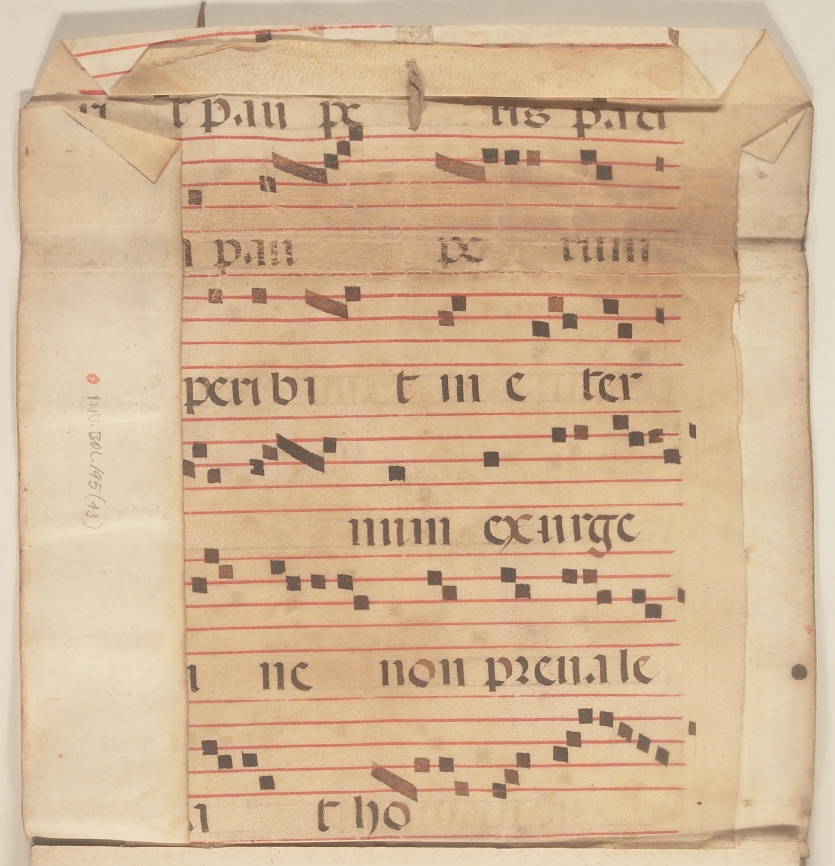 t pau pe tis paci
pau pe rum
peribi t in e ter
num exurge
ne non preuale
t ho
INV. BOL. 195 (13)